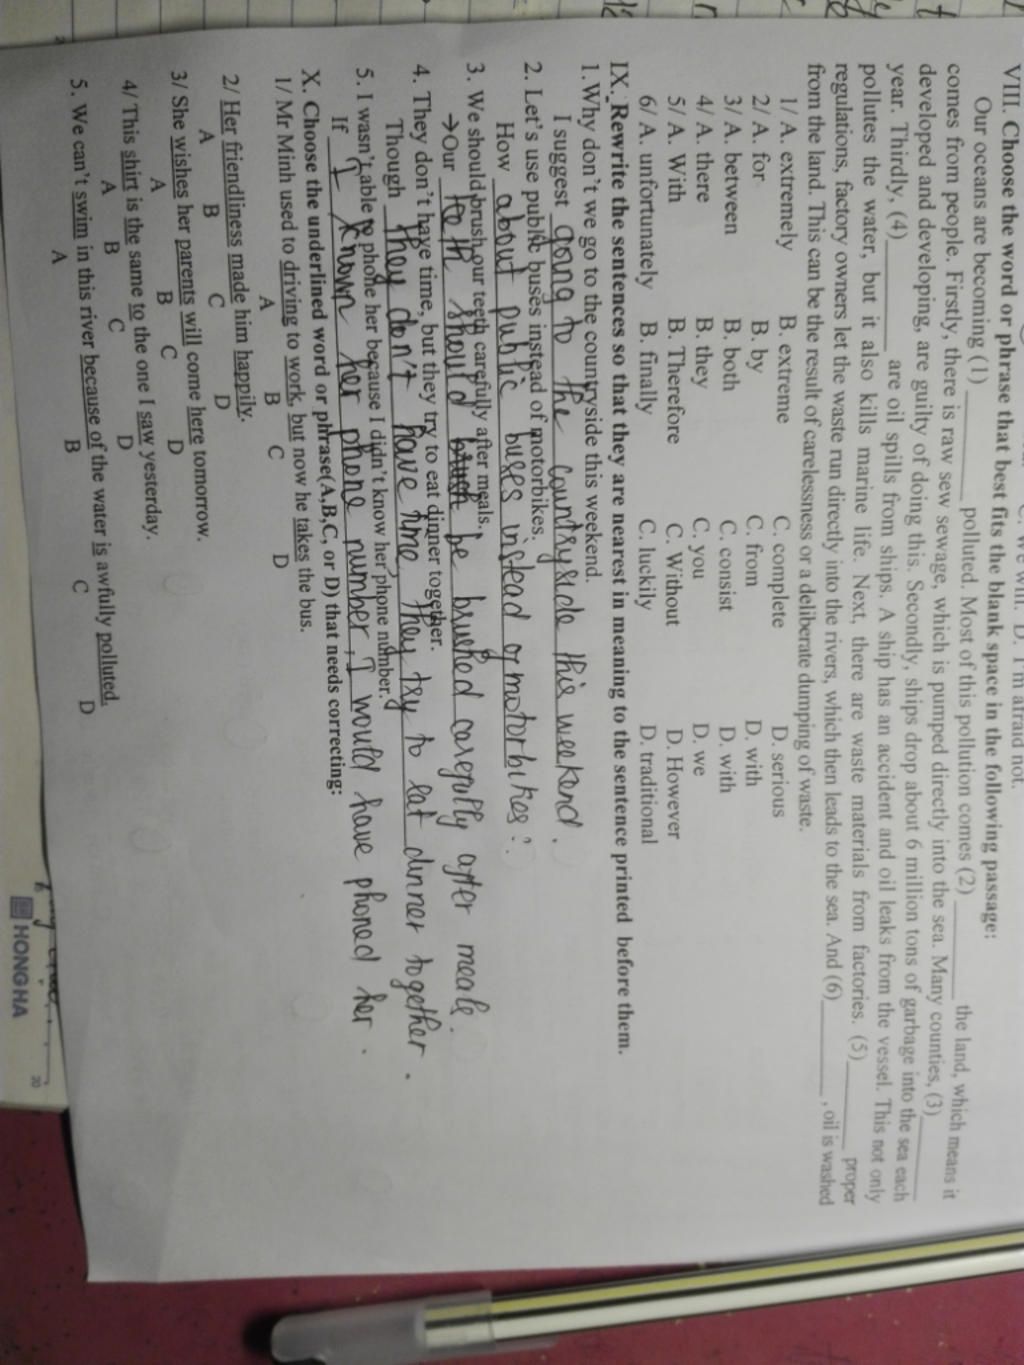 C. We will. D. I'm afraid not.
VIII. Choose the word or phrase that best fits the blank space in the following passage:
Our oceans are becoming (1) ________ polluted. Most of this pollution comes (2) ________ the land, which means it
comes from people. Firstly, there is raw sew sewage, which is pumped directly into the sea. Many counties, (3)________
developed and developing, are guilty of doing this. Secondly, ships drop about 6 million tons of garbage into the sea each
year. Thirdly, (4)________ are oil spills from ships. A ship has an accident and oil leaks from the vessel. This not only
pollutes the water, but it also kills marine life. Next, there are waste materials from factories. (5)________ proper
regulations, factory owners let the waste run directly into the rivers, which then leads to the sea. And (6)________, oil is washed
from the land. This can be the result of carelessness or a deliberate dumping of waste.
1/ A. extremely B. extreme C. complete D. serious
2/ A. for B. by C. from D. with
3/ A. between B. both C. consist D. with
4/ A. there B. they C. you D. we
5/ A. With B. Therefore C. Without D. However
6/ A. unfortunately B. finally C. luckily D. traditional
IX. Rewrite the sentences so that they are nearest in meaning to the sentence printed before them.
1. Why don't we go to the countryside this weekend.
I suggest going to the countryside this weekend.
2. Let's use public buses instead of motorbikes.
How about public buses instead of motorbikes?
3. We should brush our teeth carefully after meals.
→Our teeth should be brushed carefully after meals.
4. They don't have time, but they try to eat dinner together.
Though they don't have time, they try to eat dinner together.
5. I wasn't able to phone her because I didn't know her phone number.
If I known her phone number, I would have phoned her.
X. Choose the underlined word or phrase(A,B,C, or D) that needs correcting:
1/ Mr Minh used to driving to work, but now he takes the bus.
A B C D
2/ Her friendliness made him happily.
A B C D
3/ She wishes her parents will come here tomorrow.
A B C D
4/ This shirt is the same to the one I saw yesterday.
A B C D
5. We can't swim in this river because of the water is awfully polluted.
A B C D
HONG HA
20